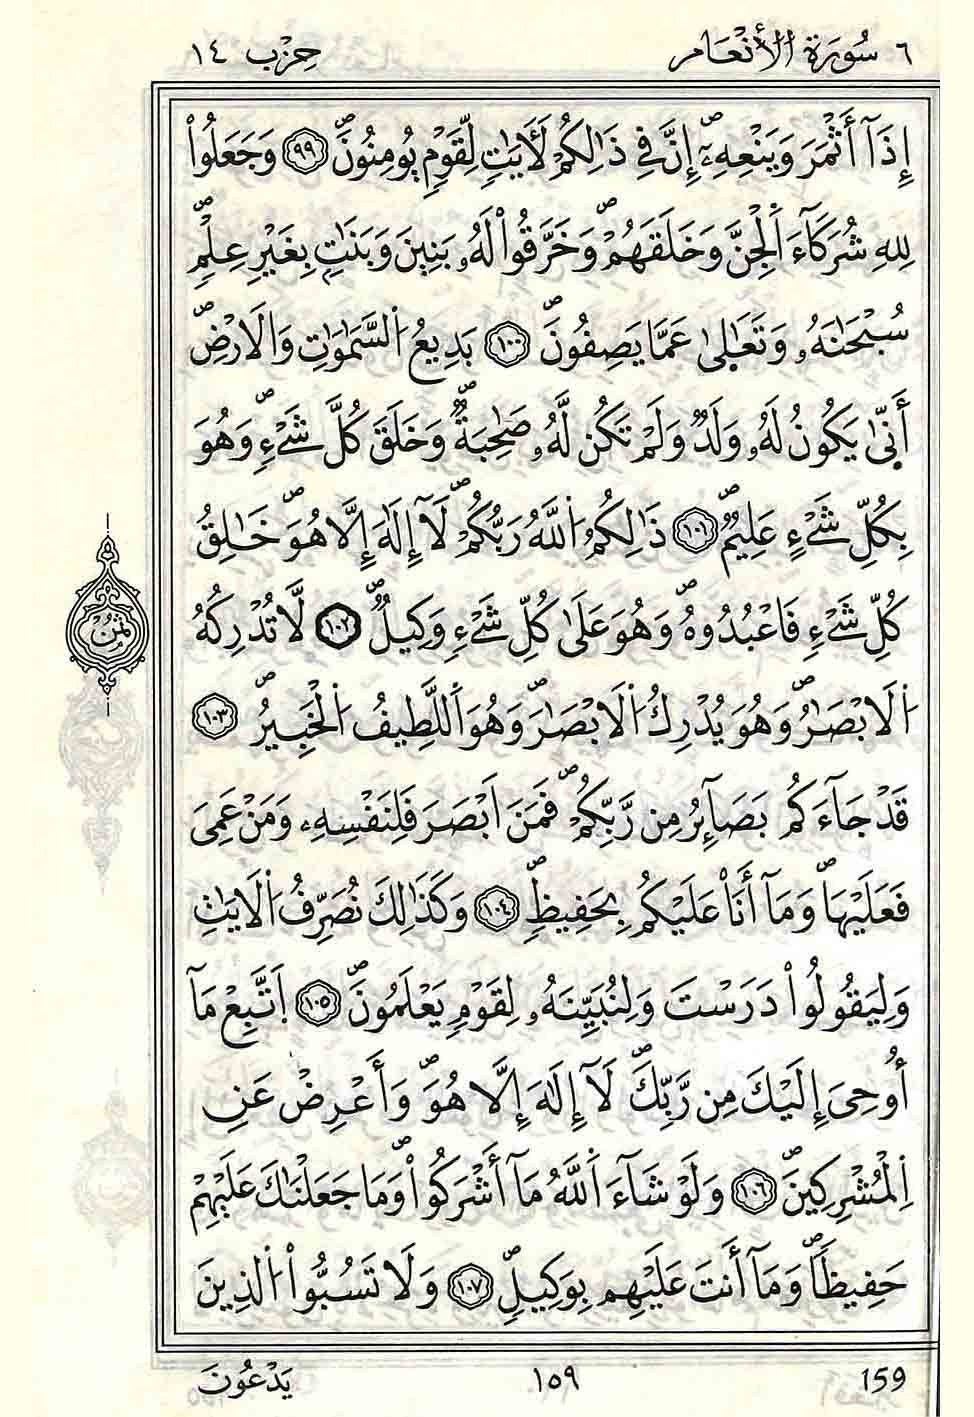 ٦ سُورَةُ الْأَنْعَامِ حِزْب ١٤
إِذَآ أَثْمَرَ وَيَنْعِهِۦٓۖ إِنَّ فِے ذَٰلِكُمْ لَأٓيَٰتٖ لِّقَوْمٖ يُومِنُونَۖ ٩٩ وَجَعَلُواْ
لِلهِ شُرَكَآءَ اَ۬لْجِنَّ وَخَلَقَهُمْۖ وَخَرَّقُواْ لَهُۥ بَنِينَ وَبَنَٰتِۢ بِغَيْرِ عِلْمٖۖ
سُبْحَٰنَهُۥ وَتَعَٰلَىٰ عَمَّا يَصِفُونَۖ ١٠٠ بَدِيعُ اُ۬لسَّمَٰوَٰتِ وَالَارْضِۖ
أَنّ۪ىٰ يَكُونُ لَهُۥ وَلَدٞ وَلَمْ تَكُن لَّهُۥ صَٰحِبَةٞۖ وَخَلَقَ كُلَّ شَےْءٖۖ وَهُوَ
بِكُلِّ شَےْءٍ عَلِيمٞۖ ١٠١ ذَٰلِكُمُ اُ۬للَّهُ رَبُّكُمْۖ لَآ إِلَٰهَ إِلَّا هُوَۖ خَٰلِقُ
كُلِّ شَےْءٖ فَاعْبُدُوهُۖ وَهُوَ عَلَىٰ كُلِّ شَےْءٖ وَكِيلٞۖ ١٠٢ لَّا تُدْرِكُهُ
اُ۬لَابْصَٰرُۖ وَهُوَ يُدْرِكُ اُ۬لَابْصَٰرَۖ وَهُوَ اَ۬للَّطِيفُ اُ۬لْخَبِيرُۖ ١٠٣
قَدْ جَآءَكُم بَصَآئِرُ مِن رَّبِّكُمْۖ فَمَنَ اَبْصَرَ فَلِنَفْسِهِۦ وَمَنْ عَمِىَ
فَعَلَيْهَاۖ وَمَآ أَنَا۠ عَلَيْكُم بِحَفِيظٖۖ ١٠٤ وَكَذَٰلِكَ نُصَرِّفُ اُ۬لَايَٰتِ
وَلِيَقُولُواْ دَرَسْتَ وَلِنُبَيِّنَهُۥ لِقَوْمٖ يَعْلَمُونَۖ ١٠٥ اَ۪تَّبِعْ مَآ
أُوحِىَ إِلَيْكَ مِن رَّبِّكَۖ لَآ إِلَٰهَ إِلَّا هُوَۖ وَأَعْرِضْ عَنِ
اِ۬لْمُشْرِكِينَۖ ١٠٦ وَلَوْ شَآءَ اَ۬للَّهُ مَآ أَشْرَكُواْۖ وَمَا جَعَلْنَٰكَ عَلَيْهِمْ
حَفِيظاٗۖ وَمَآ أَنتَ عَلَيْهِم بِوَكِيلٖۖ ١٠٧ وَلَا تَسُبُّواْ اُ۬لذِينَ
ثُمُن
يَدْعُونَ ١٥٩ 159